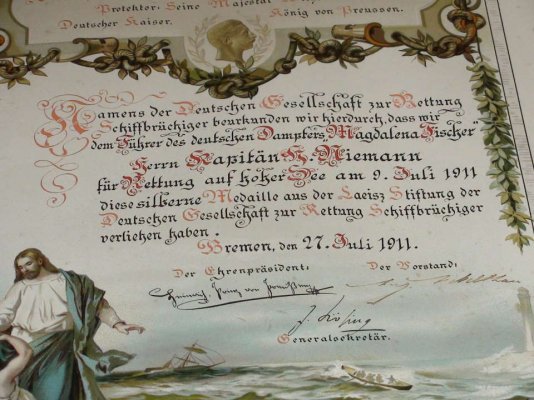 Protektor: Seine Majestät
Deutscher Kaiser, König von Preussen.
Namens der Deutschen Gesellschaft zur Rettung
Schiffbrüchiger beurkunden wir hierdurch, dass wir
dem Führer des deutschen Dampfers „Magdalena Fischer"
Herrn Kapitän H. Niemann
für Rettung auf hoher See am 9. Juli 1911
diese silberne Medaille aus der Laeisz Stiftung der
Deutschen Gesellschaft zur Rettung Schiffbrüchiger
verliehen haben.
Bremen, den 27. Juli 1911.
Der Ehrenpräsident: Der Vorstand:
Heinrich Prinz von Preussen
Generalsekretär.